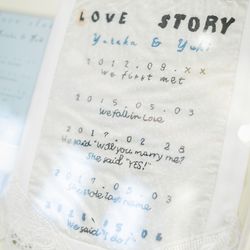 LOVE STORY
Yutaka & Yuki
2012.09.××
We first met
2015.05.03
We fall in Love
2017.02.28
He said "Will you marry me?
She said "YES!"
05.03
last name
06
We said "I do!"